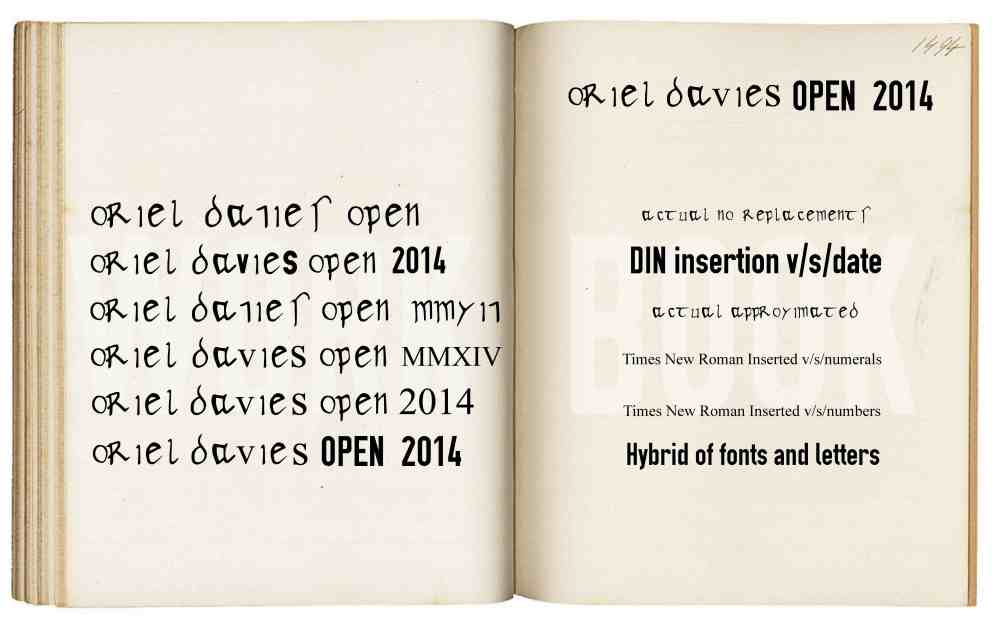 oriel davies open
oriel davies open 2014
oriel davies open mmxiv
oriel davies open MMXIV
oriel davies open 2014
oriel davies OPEN 2014
1494
oriel davies OPEN 2014
actual no replacements
DIN insertion v/s/date
actual approximated
Times New Roman Inserted v/s/numerals
Times New Roman Inserted v/s/numbers
Hybrid of fonts and letters
WORK BOOK